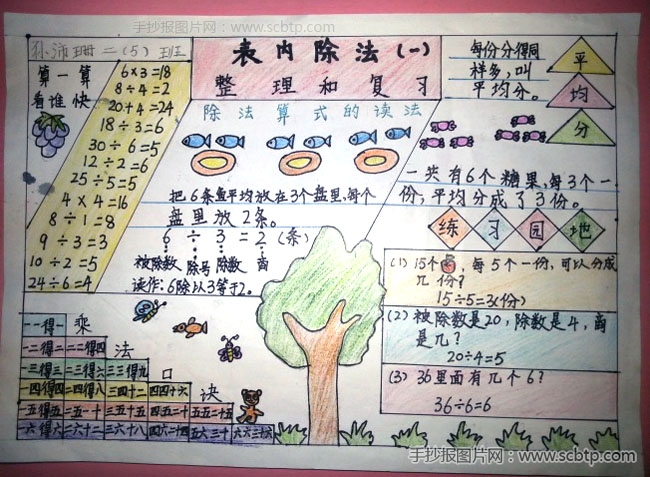 手抄报图片网 : www.scbtp.com
孙沛珊二(5)班
表内除法(一)
整理和复习
算一算
看谁快
6×3=18
8÷4=2
20+4=24
18÷3=6
30÷6=5
12÷2=6
25÷5=5
4×4=16
8÷1=8
9÷3=3
10÷2=5
24÷6=4
除法算式的读法
把6条鱼平均放在3个盘里,每个
盘里放2条。
6÷3=2(条)
被除数 除号 除数 商
读作:6除以3等于2。
每份分得同
样多,叫
平均分。
平
均
分
一共有6个糖果,每3个一
份,平均分成了3份。
练习园地
(1)15个,每5个一份,可以分成
几份?
15÷5=3(份)
(2)被除数是20,除数是4,商
是几?
20÷4=5
(3)36里面有几个6?
36÷6=6
乘法口诀
一一得一
一二得二 二二得四
一三得三 二三得六 三三得九
一四得四 二四得八 三四十二 四四十六
一五得五 二五一十 三五十五 四五二十 五五二十五
一六得六 二六十二 三六十八 四六二十四 五六三十 六六三十六
手抄报图片网 : www.scbtp.com